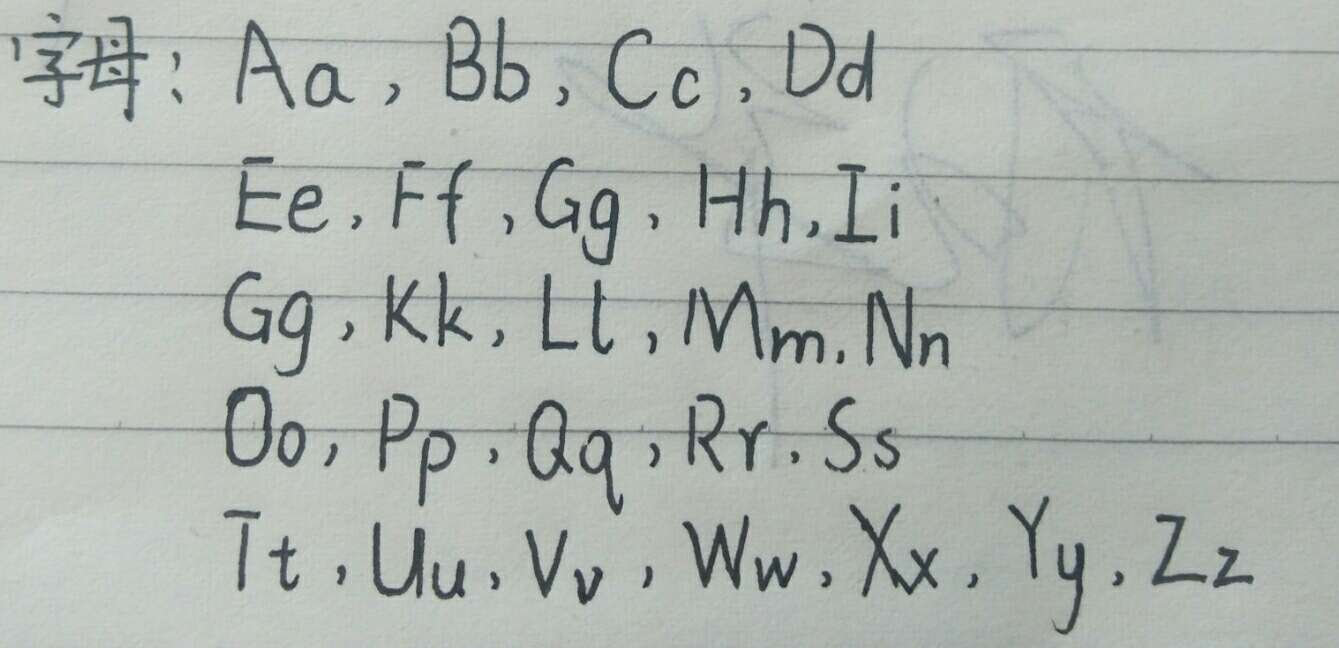 字母: Aa, Bb, Cc, Dd
Ee, Ff, Gg, Hh, Ii
Gg, Kk, Ll, Mm, Nn
Oo, Pp, Qq, Rr, Ss
Tt, Uu, Vv, Ww, Xx, Yy, Zz